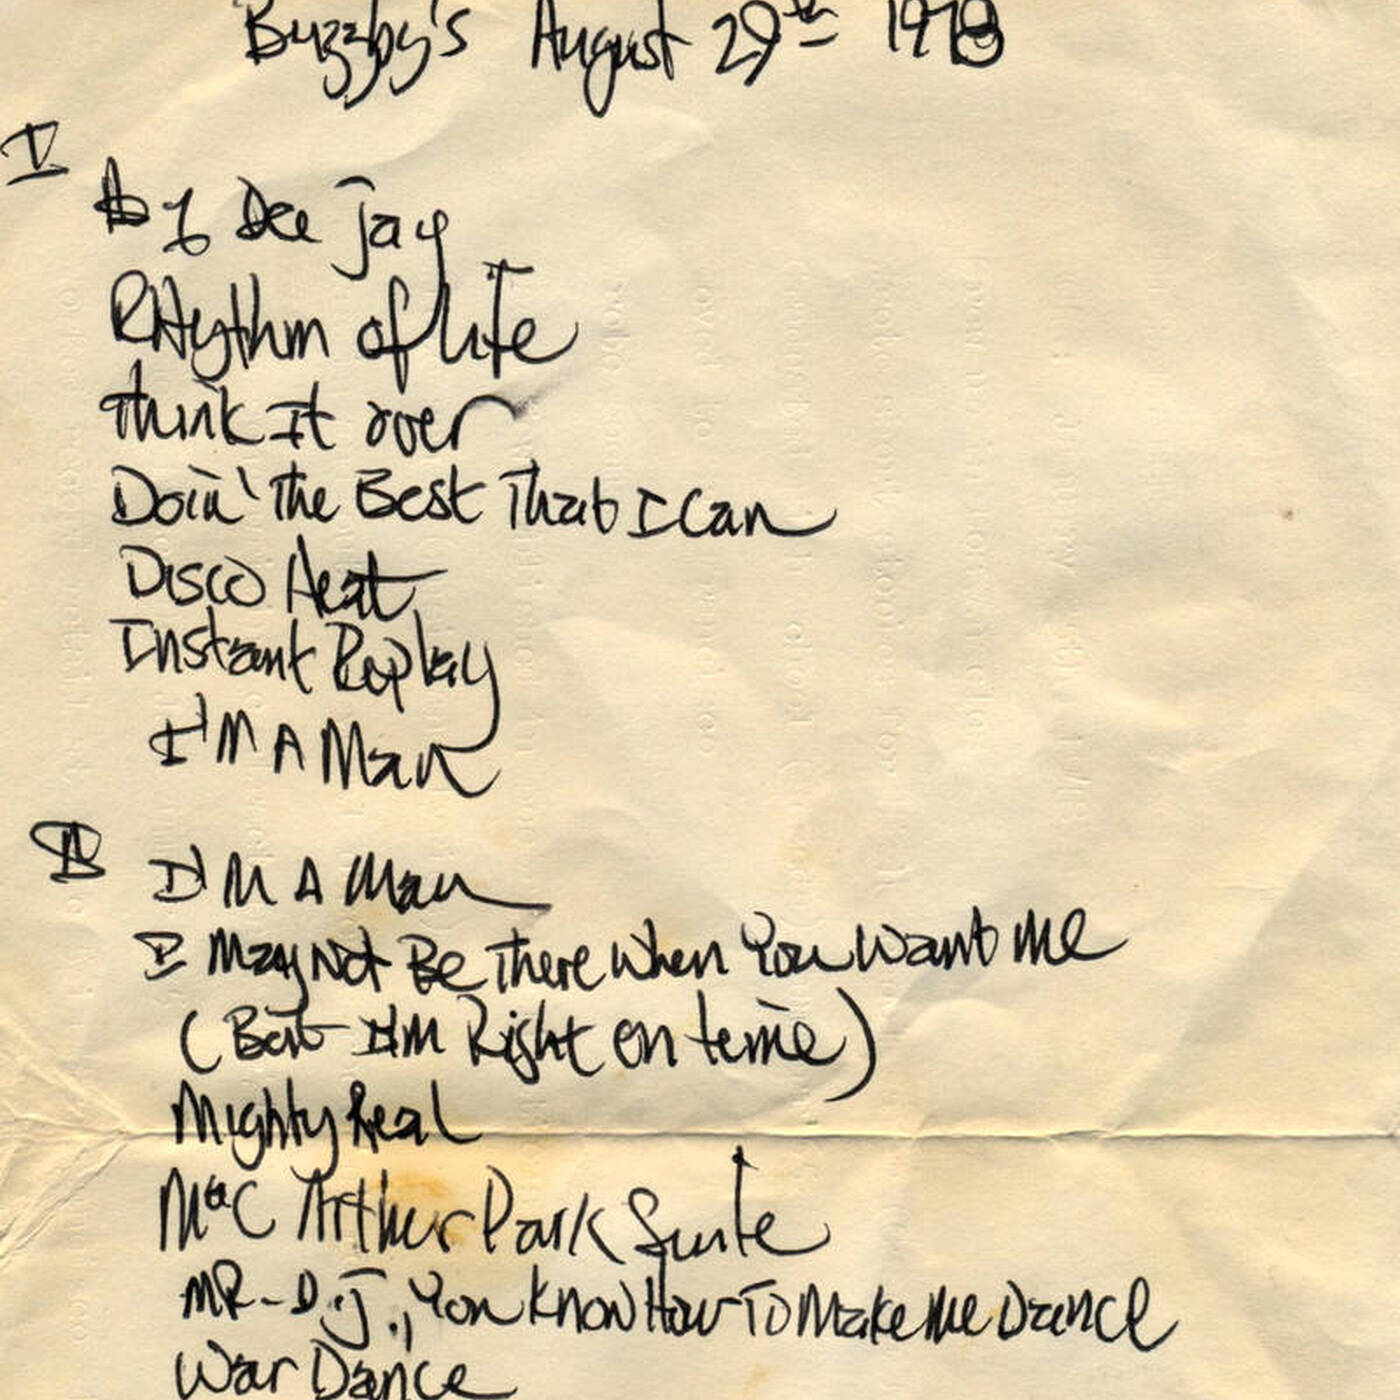 Buzzby's August 29th 1978
I
Dee Jay
RHythm of life
Think It over
Doin' The Best That I Can
Disco Heat
Instant Replay
I'M A Man
II
I'M A Man
I May Not Be There When You Want Me
(But I'M Right On time)
Mighty Real
MaC Arthur Park Suite
MR-D.J., You Know How To Make Me Dance
War Dance